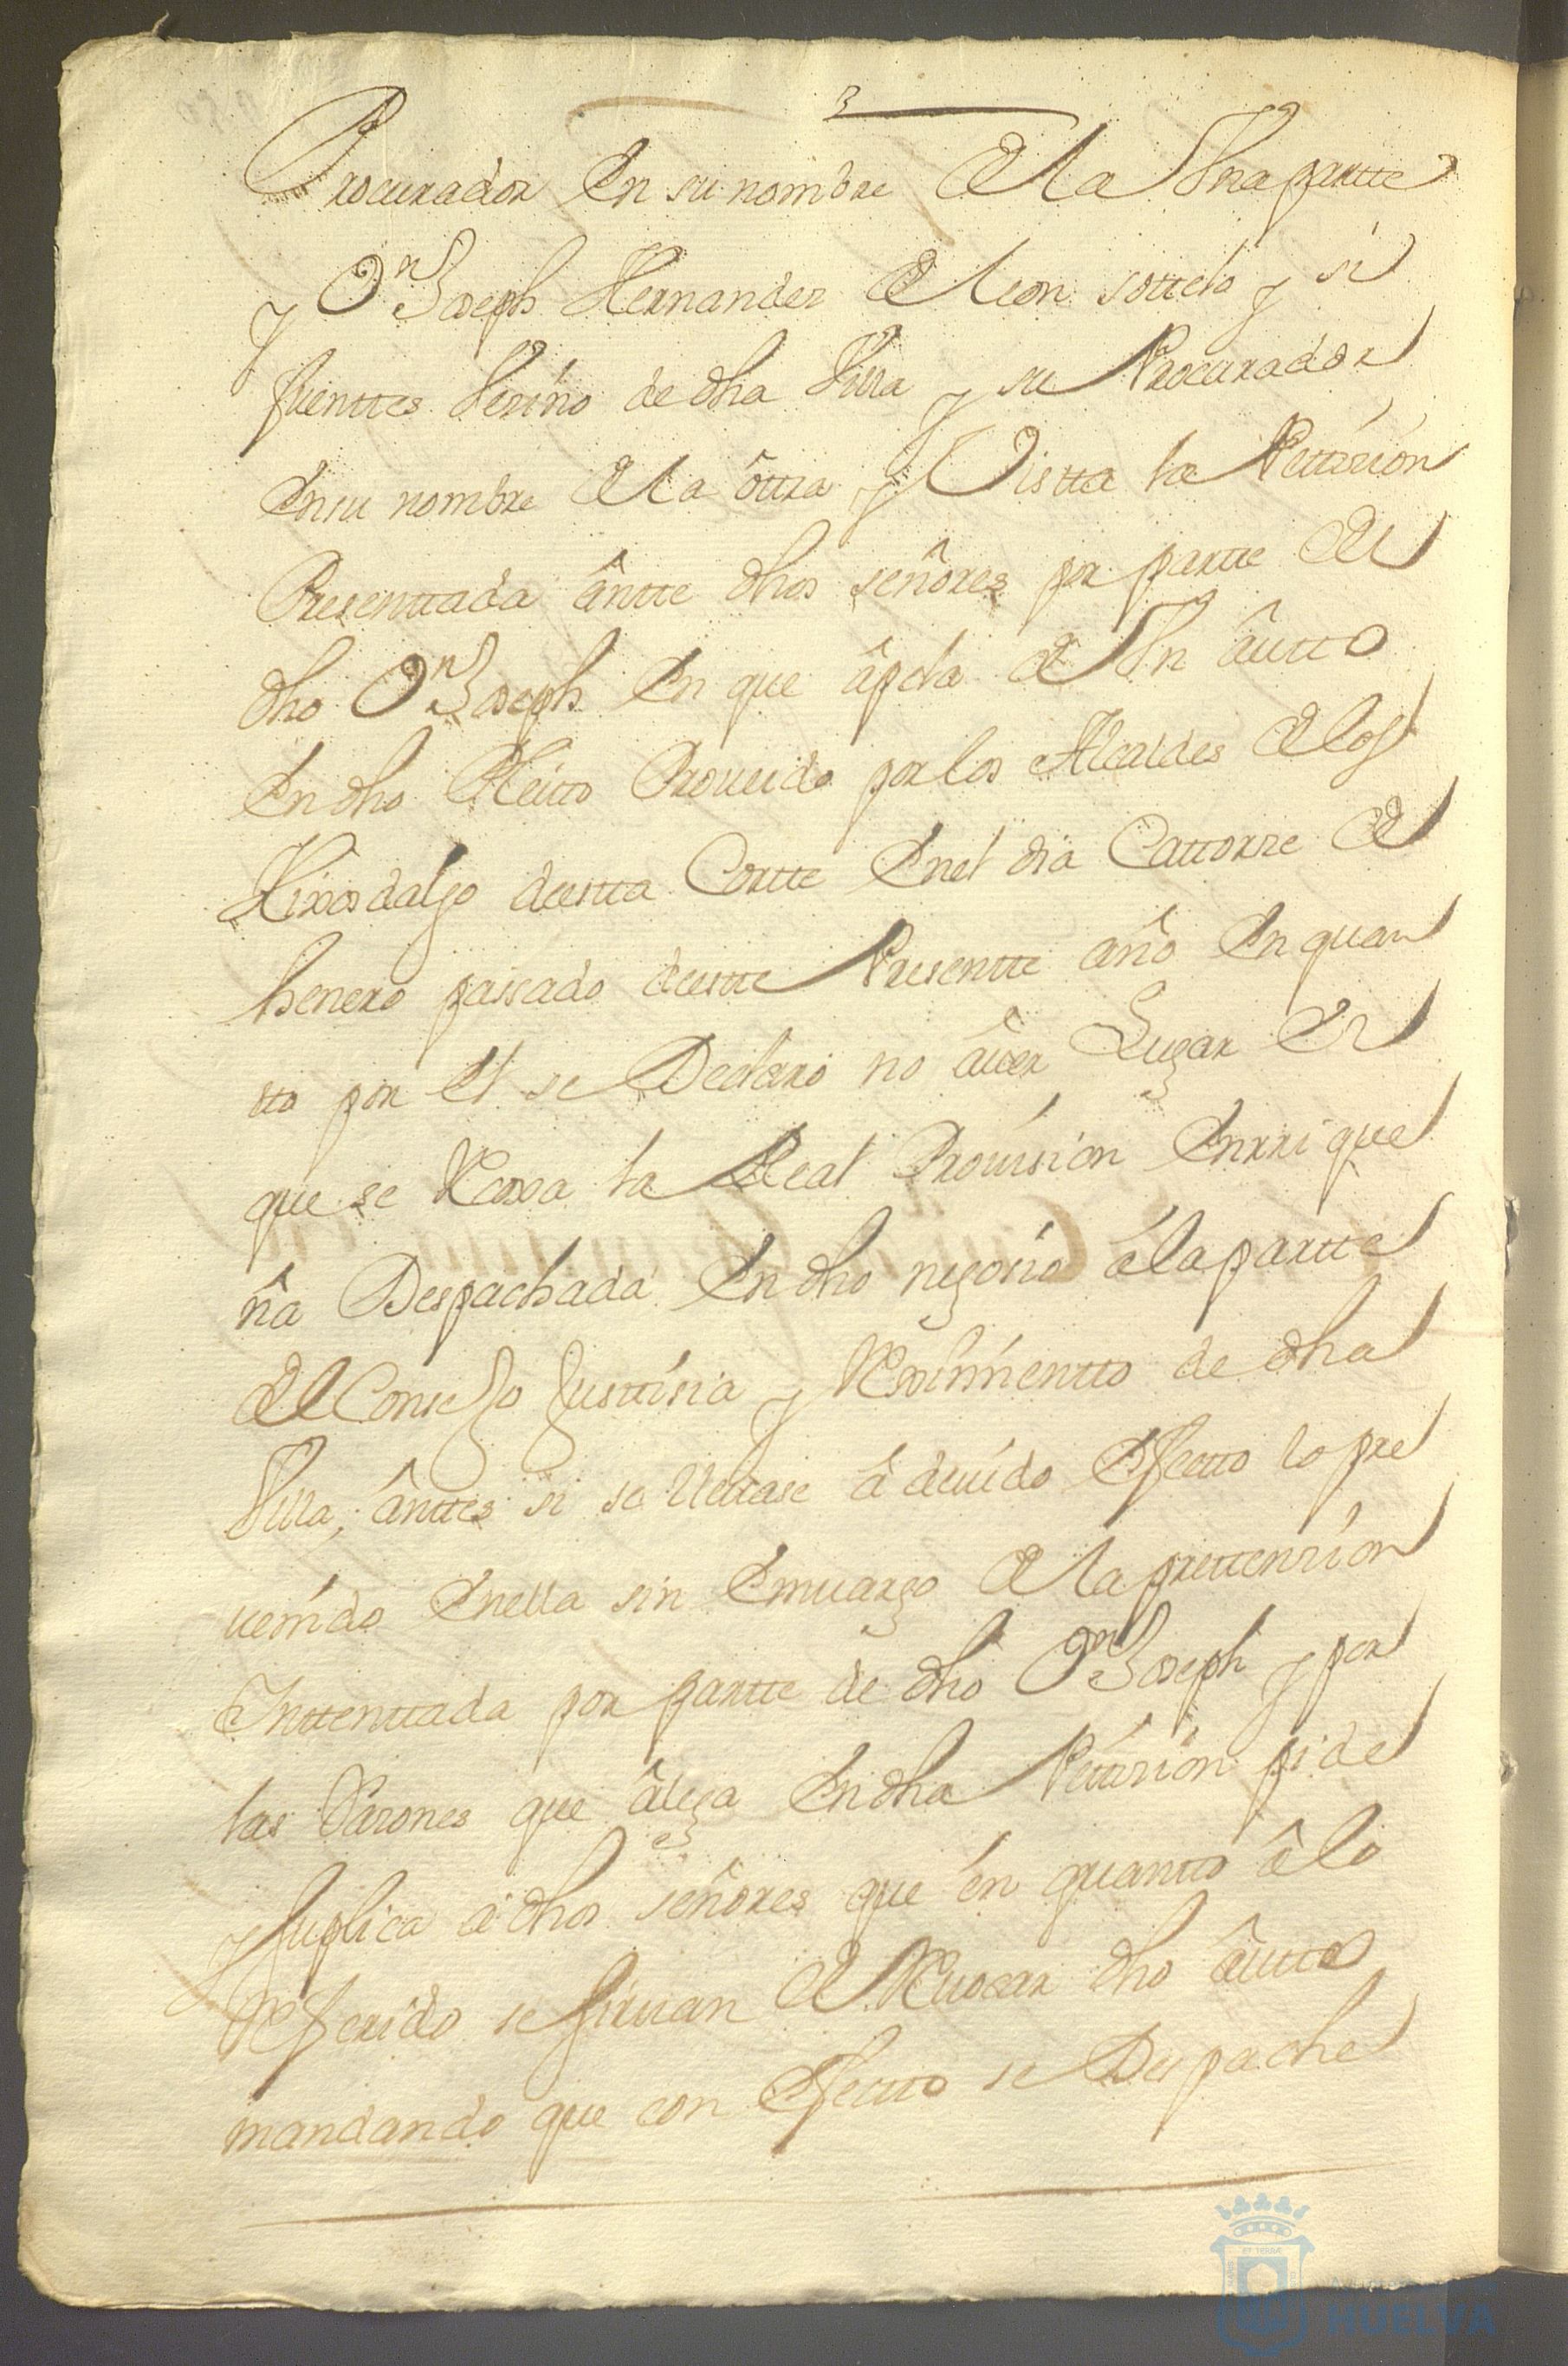 Procurador En su nombre de la Una partte
y Dn Joseph Hernandez de leon sottelo y si
fuenttes Vezino de dha Villa y su Procurador
En su nombre de la ôttra y Vistta la Petticion
Presenttada ântte dhos señores por partte del
dho Dn Joseph En que âpela de Un âutto
En dho Pleitto Proueido por los Alcaldes de los
Hixosdalgo deestta Cortte En el dia Cattorze de
henero passado deestte Presentte año En quan
tto por El se Declaro no âuer Lugar En
que se Recoxa la Real Prouision Enrrique
ña Despachada En dho negocio â la partte
del Consejo Justtisia y Reximientto de dha
Villa, ânttes si se lleuase â deuido Efectto lo pre
uenido En ella sin Emuargo de la prettencion
Inttenttada por partte de dho Dn Joseph y por
las Razones que âlega En dha Petticion pide
y suplica â dhos señores que en quantto â lo
Referido se siruan de Reuocar dho âutto
mandando que con Efectto se Despache
HUELVA